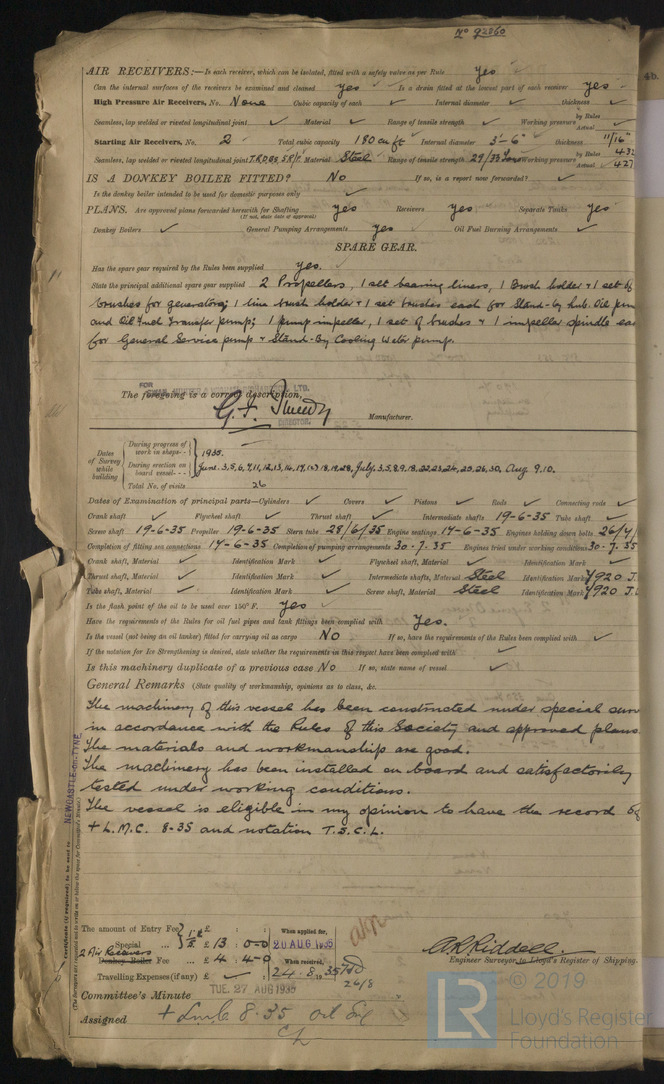 No 92860
AIR RECEIVERS:—Is each receiver, which can be isolated, fitted with a safety valve as per Rule yes
Can the internal surfaces of the receivers be examined and cleaned yes Is a drain fitted at the lowest part of each receiver yes
High Pressure Air Receivers, No. None Cubic capacity of each ✓ Internal diameter ✓ thickness ✓
Seamless, lap welded or riveted longitudinal joint ✓ Material ✓ Range of tensile strength ✓ Working pressure by Rules Actual ✓
Starting Air Receivers, No. 2 Total cubic capacity 180 cu ft Internal diameter 3'-6" thickness 11/16"
Seamless, lap welded or riveted longitudinal joint T.R.D.B.S. Material Steel Range of tensile strength 29/33 Tons Working pressure by Rules 432 Actual 427
IS A DONKEY BOILER FITTED? No If so, is a report now forwarded? ✓
Is the donkey boiler intended to be used for domestic purposes only ✓
PLANS. Are approved plans forwarded herewith for Shafting yes Receivers yes Separate Tanks yes
(If not, state date of approval)
Donkey Boilers ✓ General Pumping Arrangements yes Oil Fuel Burning Arrangements ✓
SPARE GEAR.
Has the spare gear required by the Rules been supplied yes.
State the principal additional spare gear supplied 2 Propellers, 1 set bearing liners, 1 Brush holder + 1 set of
brushes for generators; 1 line brush holder + 1 set brushes each for Stand-by Lub. Oil pum
and Oil Fuel Transfer pump; 1 pump impeller, 1 set of brushes + 1 impeller spindle eac
for General Service pump + Stand-By Cooling Water pump.
FOR
The foregoing is a correct description,
DIRECTOR.
Manufacturer.
Dates of Survey while building
During progress of work in shops-- 1935.
During erection on board vessel--- June. 3,5,6,7,11,12,13,14,17,18,19,28, July. 3,5,8,9,18,22,23,24,25,26,30, Aug. 9.10.
Total No. of visits 26
Dates of Examination of principal parts—Cylinders ✓ Covers ✓ Pistons ✓ Rods ✓ Connecting rods ✓
Crank shaft ✓ Flywheel shaft ✓ Thrust shaft ✓ Intermediate shafts 19-6-35 Tube shaft ✓
Screw shaft 19-6-35 Propeller 19-6-35 Stern tube 28/6/35 Engine seatings 14-6-35 Engines holding down bolts 26/7/
Completion of fitting sea connections 14-6-35 Completion of pumping arrangements 30-7-35 Engines tried under working conditions 30-7-35
Crank shaft, Material ✓ Identification Mark ✓ Flywheel shaft, Material ✓ Identification Mark ✓
Thrust shaft, Material ✓ Identification Mark ✓ Intermediate shafts, Material Steel Identification Marks 7920 J.
Tube shaft, Material ✓ Identification Mark ✓ Screw shaft, Material Steel Identification Mark 7920 J.
Is the flash point of the oil to be used over 150° F. yes ✓
Have the requirements of the Rules for oil fuel pipes and tank fittings been complied with yes.
Is the vessel (not being an oil tanker) fitted for carrying oil as cargo No If so, have the requirements of the Rules been complied with ✓
If the notation for Ice Strengthening is desired, state whether the requirements in this respect have been complied with ✓
Is this machinery duplicate of a previous case No If so, state name of vessel ✓
General Remarks (State quality of workmanship, opinions as to class, &c.
The machinery of this vessel has been constructed under special surv
in accordance with the Rules of this Society and approved plans
The materials and workmanship are good.
The machinery has been installed on board and satisfactorily
tested under working conditions.
The vessel is eligible in my opinion to have the record of
+ L.M.C. 8-35 and notation T.S.C.L.
NEWCASTLE-ON-TYNE
Certificate (if required) to be sent to
(The Surveyors are requested not to write on or below the space for Committee's Minute.)
The amount of Entry Fee £ : :
Special ... £ 13 : 0-0
2 Air Receivers
Donkey Boiler Fee ... £ 4 : 4-0
Travelling Expenses (if any) £ ✓ :
When applied for,
20 AUG 1935
When received,
24.8.1935
26/8
A R Riddell.
Engineer Surveyor to Lloyd's Register of Shipping.
Committee's Minute TUE. 27 AUG 1935
Assigned + LMC 8.35 Oil Eng
CL
LR
© 2019
Lloyd's Register
Foundation